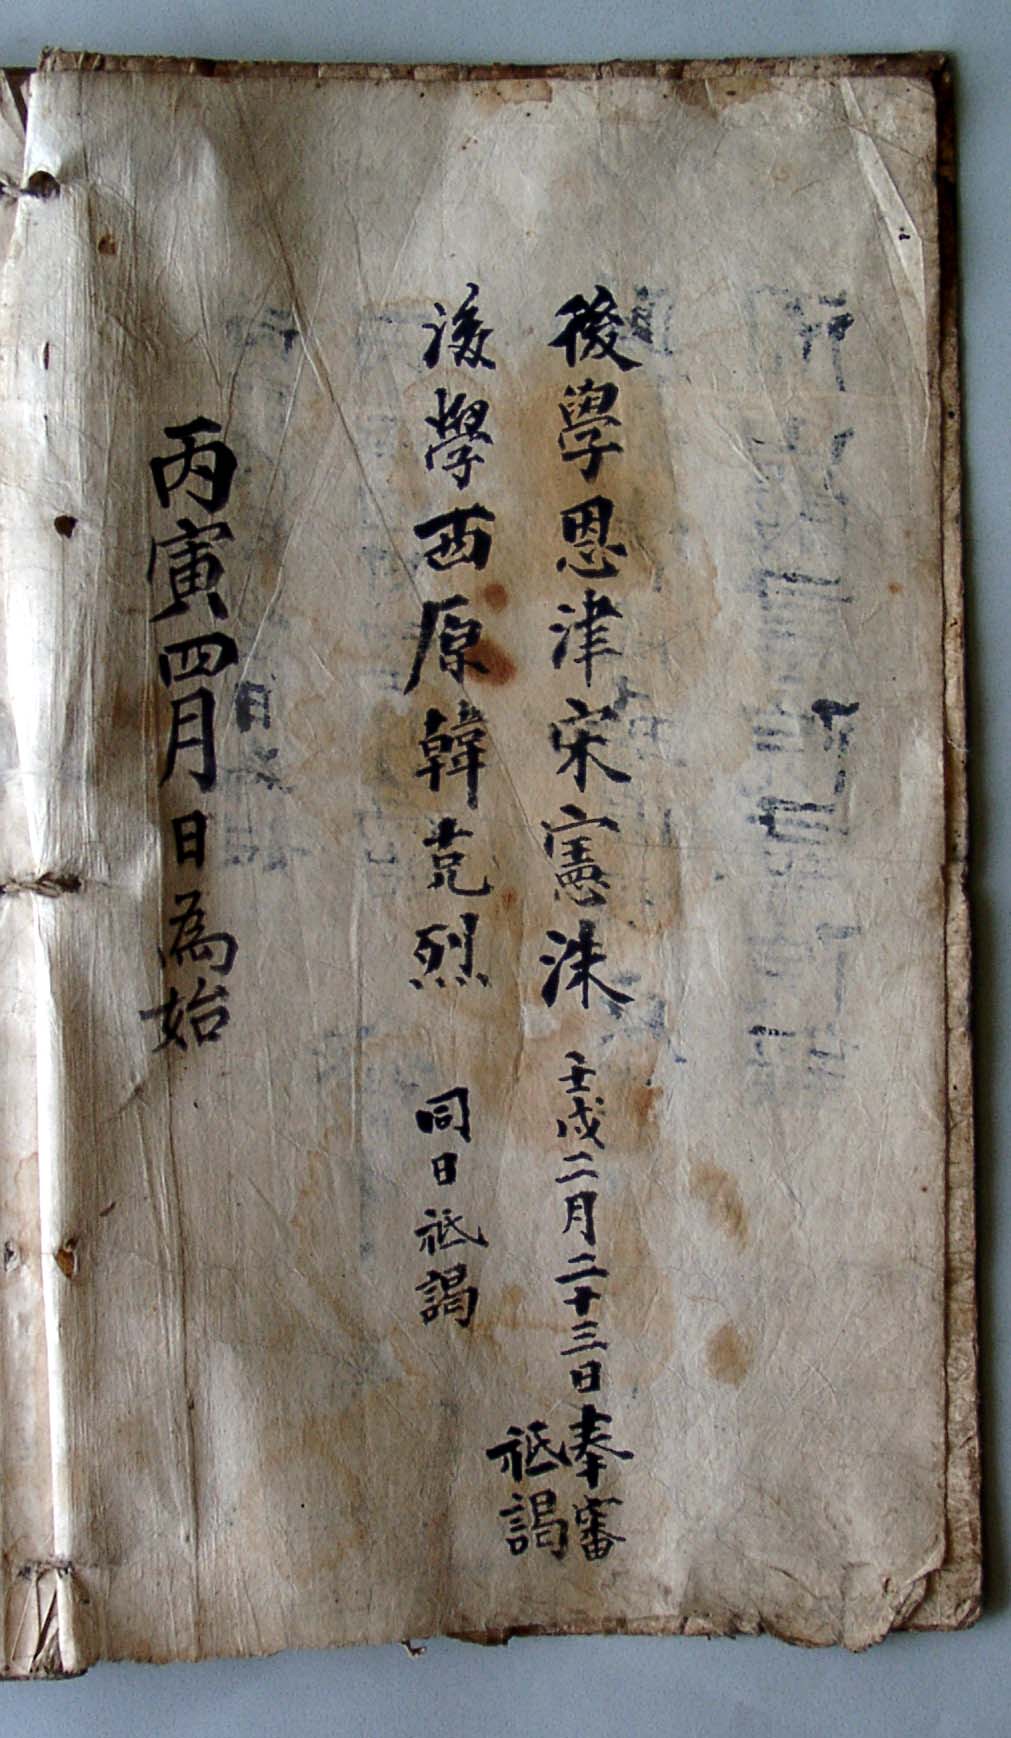 後學恩津宋憲洙 壬戌二月二十三日奉審
祗謁
後學西原韓克烈 同日祗謁
丙寅四月日為始